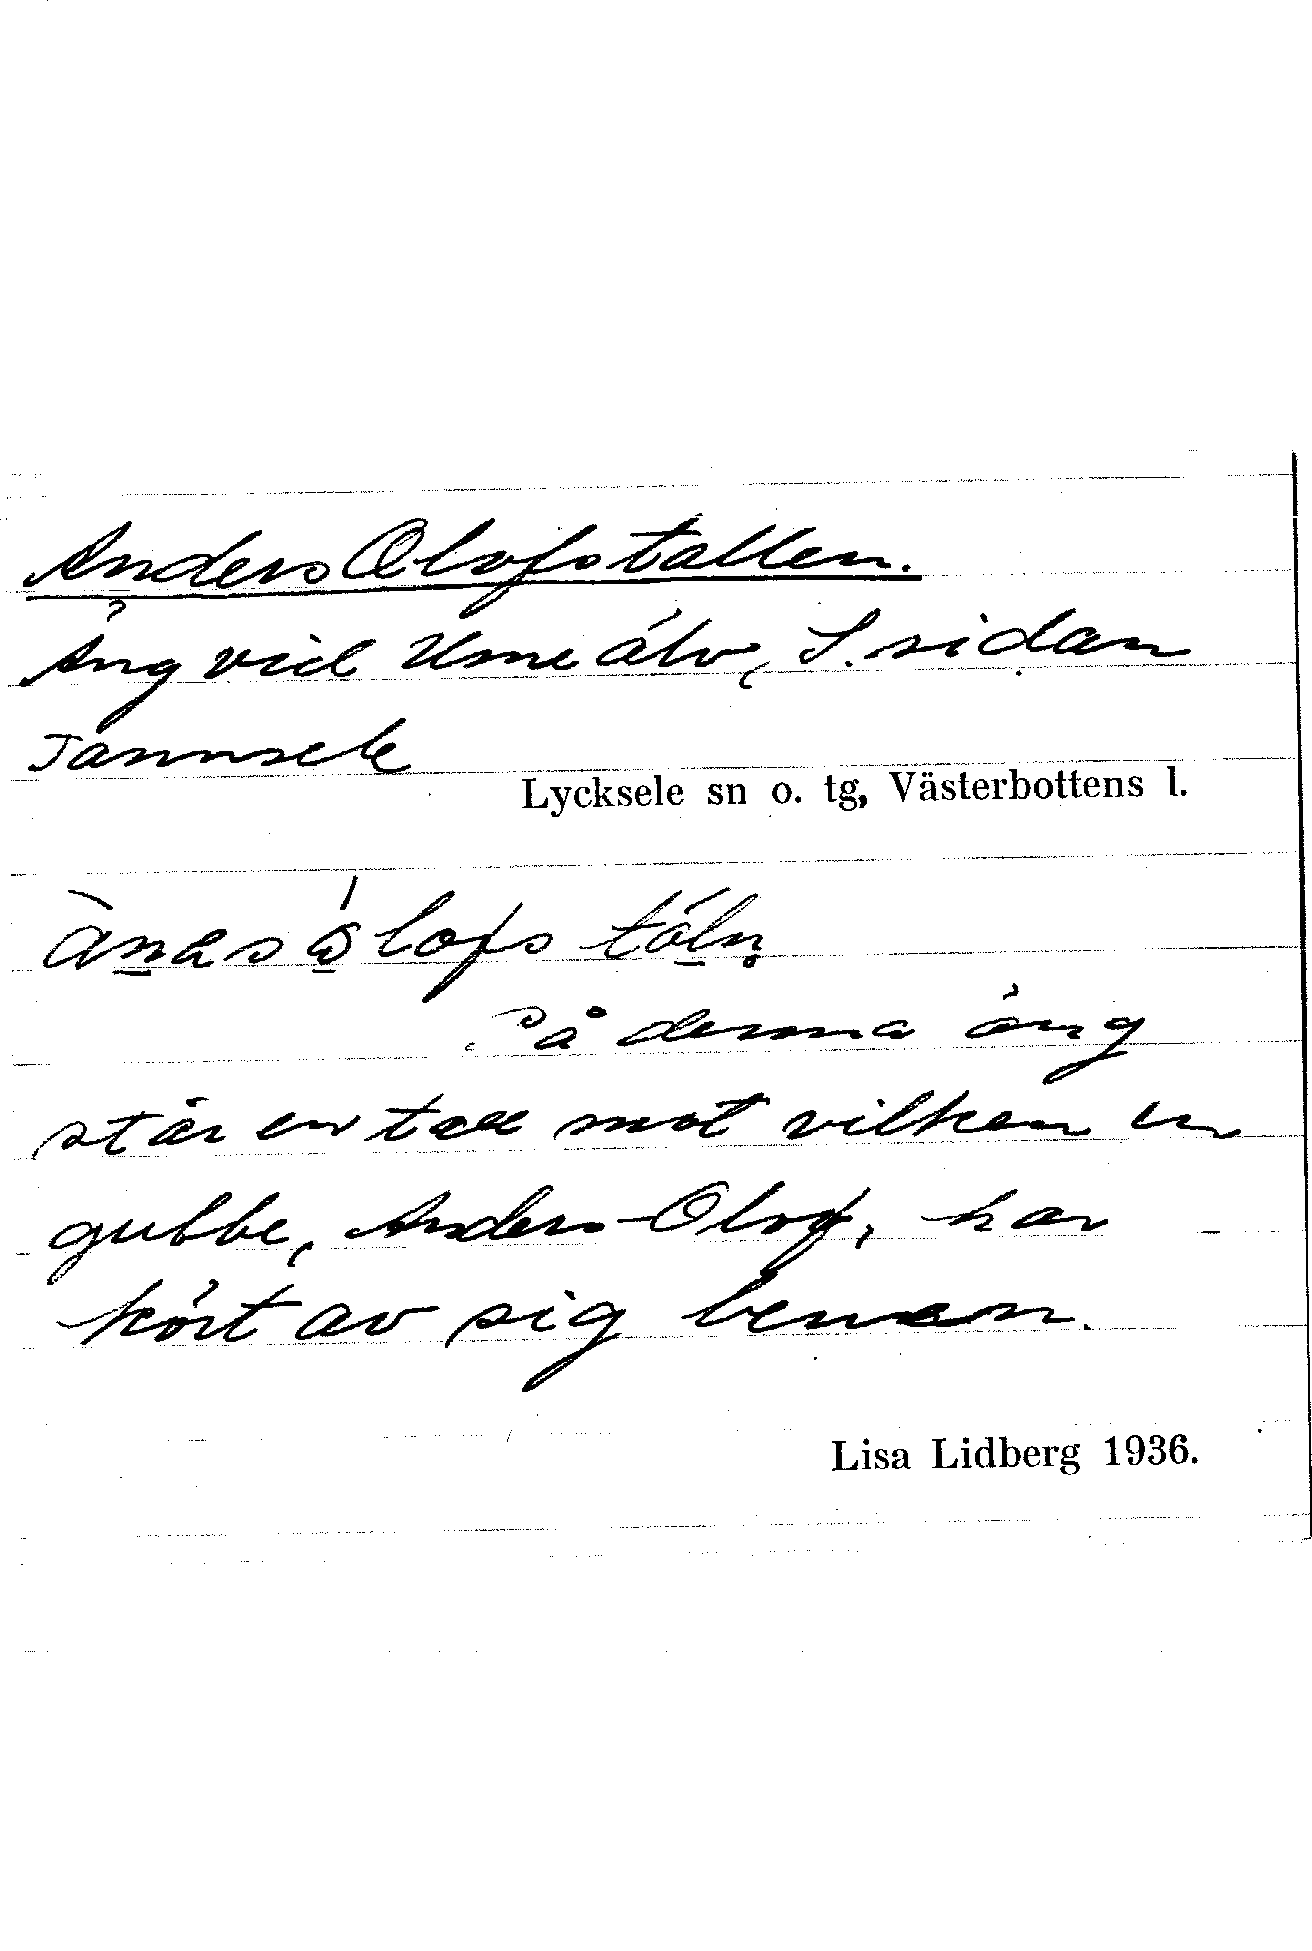 Anders Olofstallen.
Äng vid Ume älv, S. sidan
Tannsele
Lycksele sn o. tg, Västerbottens l.
På denna äng
står en tall mot vilken en
gubbe, Anders-Olof, har
kört av sig benen.
Lisa Lidberg 1936.